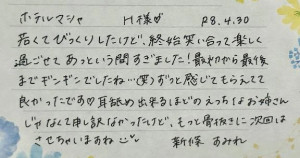 ホテルマシャ H様♡ R8.4.30
若くてびっくりしたけど、終始笑い合って楽しく
過ごせてあっという間すぎました！最初から最後
までギンギンでしたね…(笑)ずっと感じてもらえてて
良かったです♡耳舐め出来るほどのえっちなお姉さん
じゃなくて申し訳なかったけど、もっと骨抜きに次回は
させちゃいますね
新條 すみれ